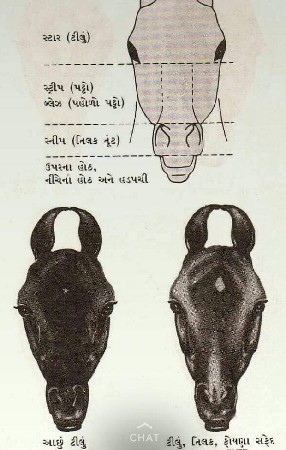 સ્ટાર (ટીલું)
સ્ટ્રીપ (પટ્ટો)
બ્લેઝ (પહોળો પટ્ટો)
સ્નીપ (તિલક તૂંટ)
ઉપરના હોઠ,
નીચેના હોઠ અને હડપચી
આછું ટીલું
ટીલું, તિલક, ફોયણા સફેદ
CHAT